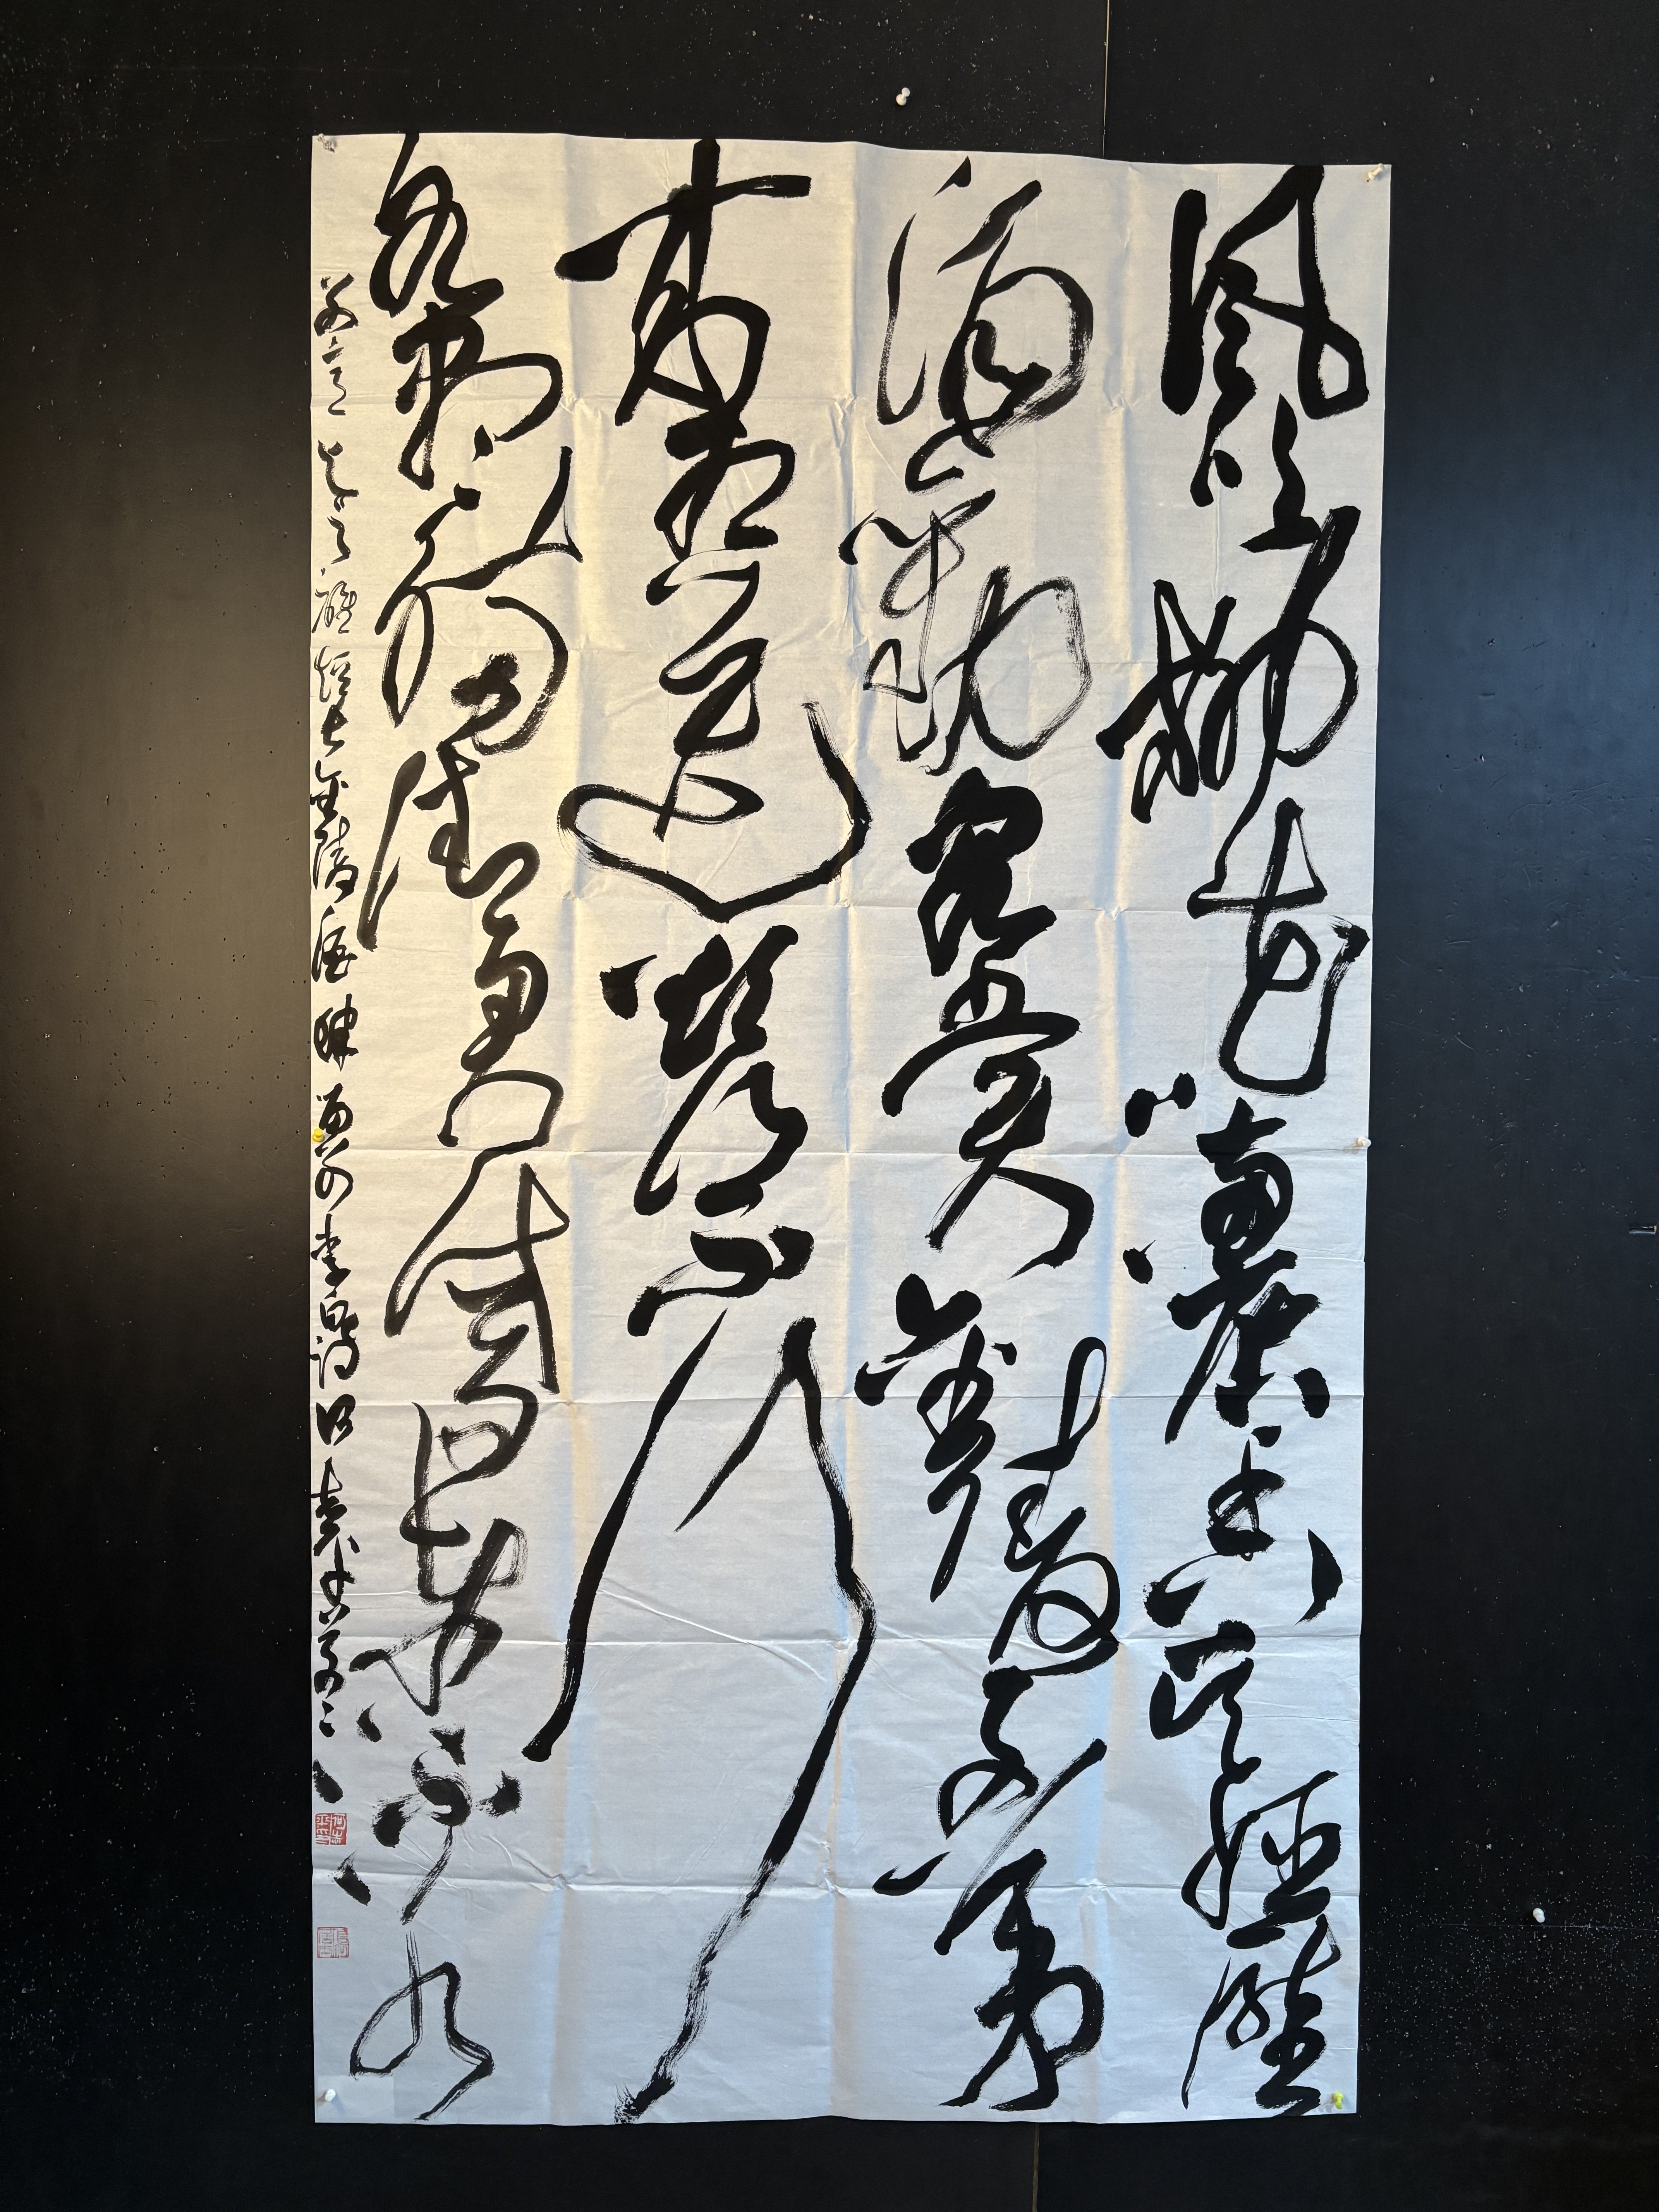 風吹柳花滿店香吳姬壓
酒勸客嘗金陵子弟
來相送欲行不行
各盡觴請君試問東流水
別意與之誰短長金陵酒肆留別李白詩